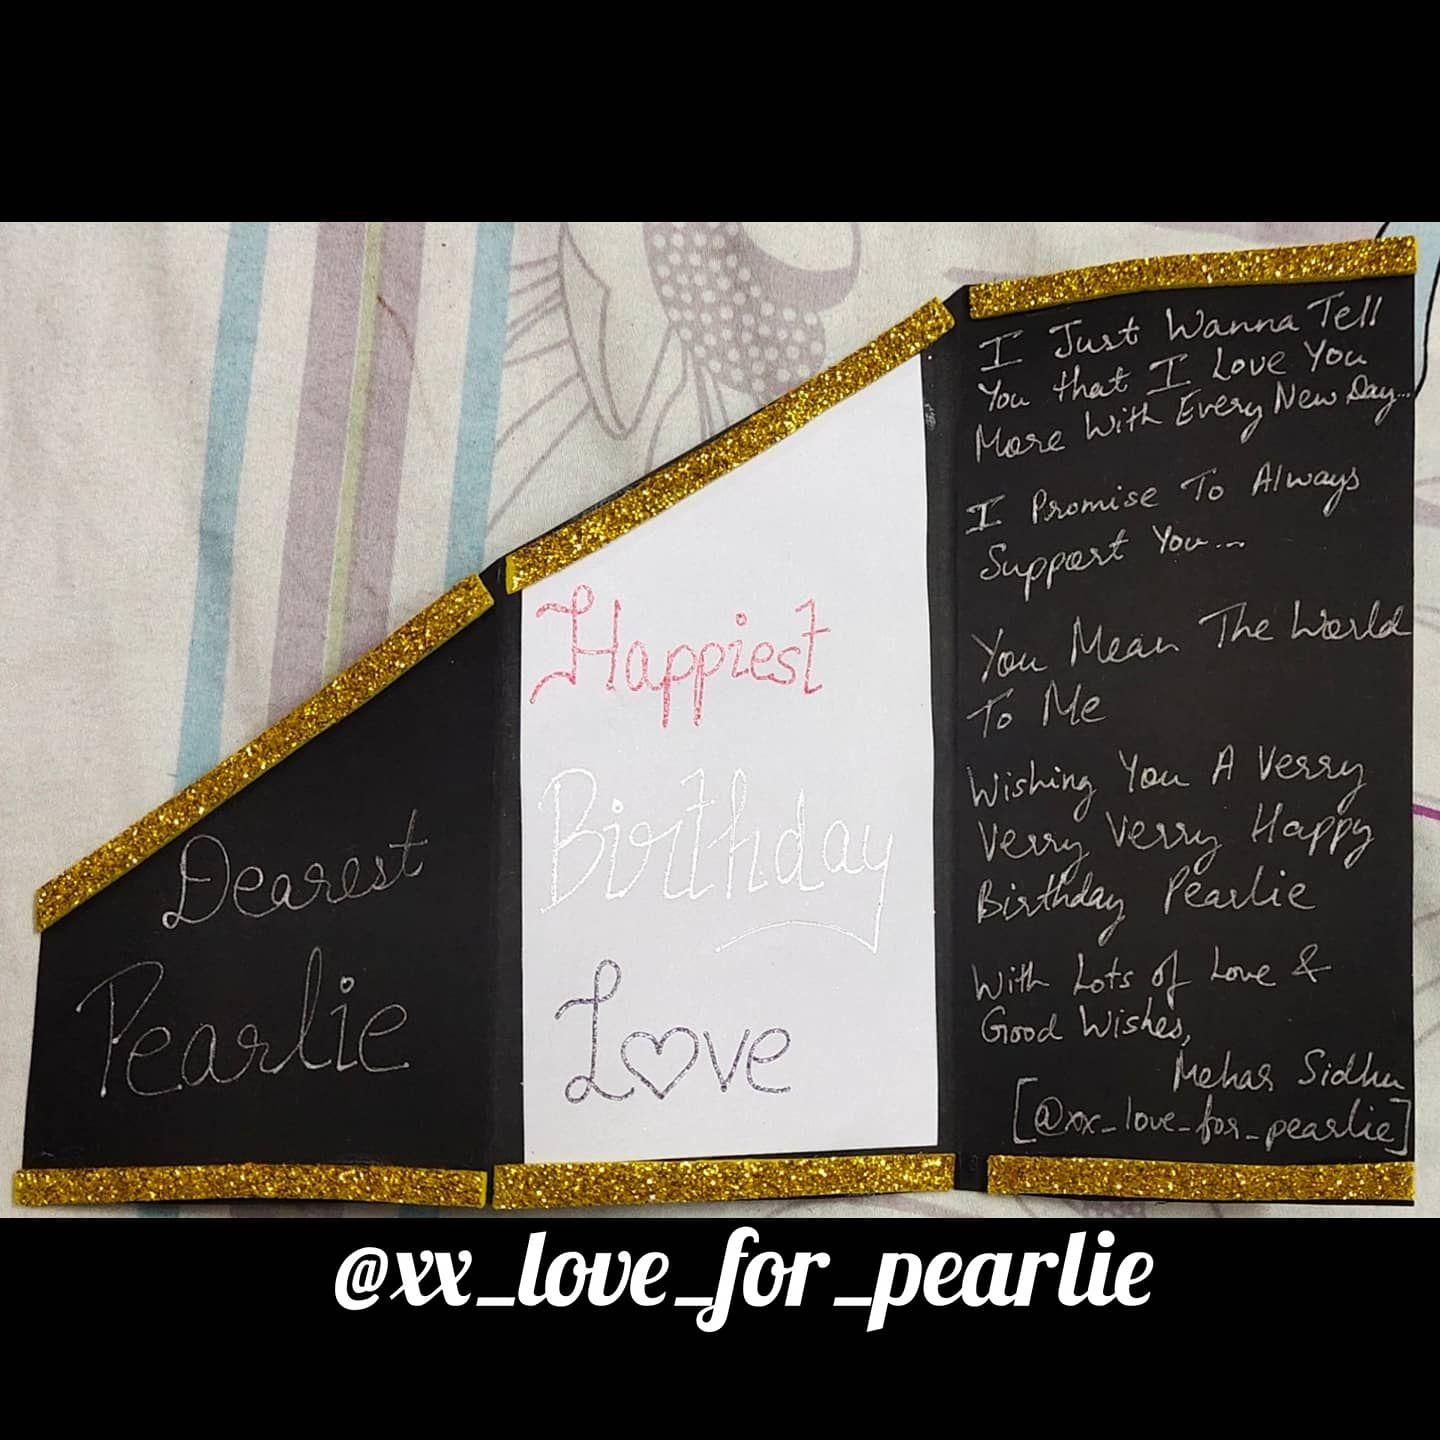 Dearest
Pearlie
Happiest
Birthday
Love
I Just Wanna Tell
You that I Love You
More With Every New Day...
I Promise To Always
Support You...
You Mean The World
To Me
Wishing You A Verry
Verry Verry Happy
Birthday Pearlie
With Lots of Love &
Good Wishes,
Mehar Sidhu
[@xx_love_for_pearlie]
@xx_love_for_pearlie